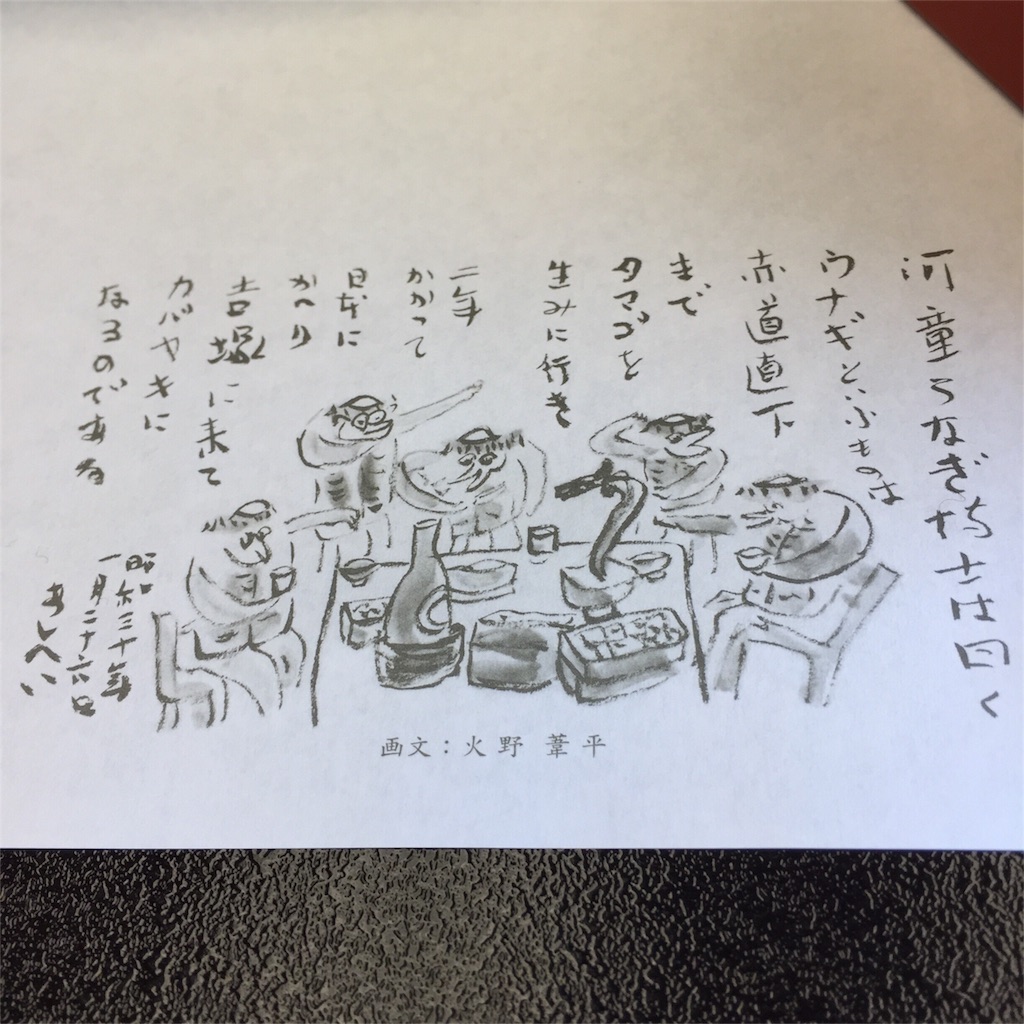 河童うなぎ博士は曰く
ウナギといふものは
赤道直下
まで
タマゴを
生みに行き
二年
かかって
日本に
かへり
吉塚に来て
カバヤキに
なるのである
昭和三十年
一月二十六日
あしへい
画文：火野 葦平